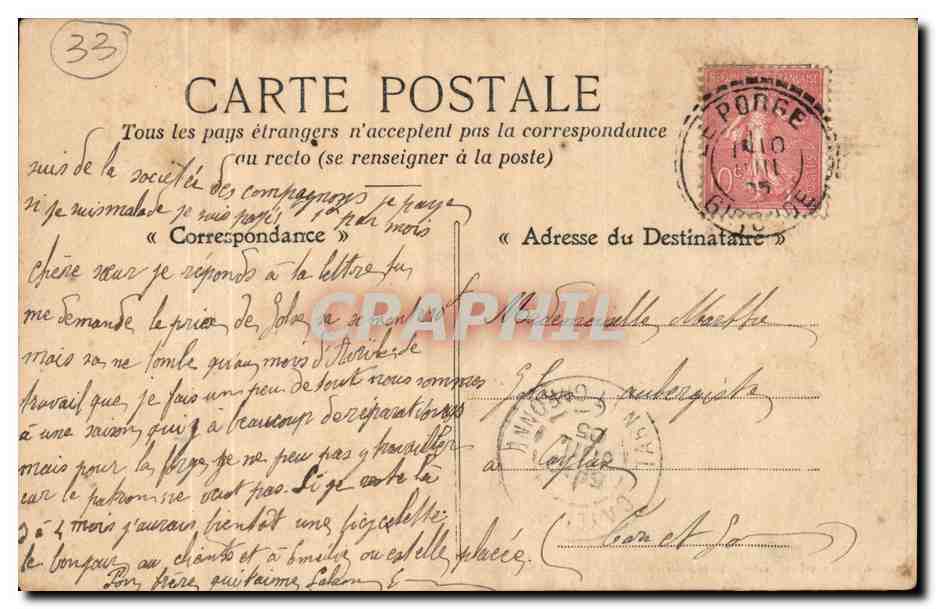 33
CARTE POSTALE
Tous les pays étrangers n'acceptent pas la correspondance
au recto (se renseigner à la poste)
LE PORGE
10
GIRONDE
suis de la société des compagnons je paye
si je suis malade je suis payé 1f par mois
« Correspondance »
« Adresse du Destinataire »
chère sœur je réponds à la lettre tu
me demande le prix de
mais sa ne tombe qu'au mois d'
travail que je fais un peu de tout nous sommes
à une saison qui y à beaucoup de réparations
mais pour la forge je ne peu pas y travailler
car le patron ne veut pas. Si je reste là
3 à 4 mois j'aurais bientôt une bicyclette.
le bonjour au clients et à ou est elle placée
Ton frère qui t'aime
Mademoiselle
aubergiste
à Caylus
Tarn et G
TARN
CRAPHIL